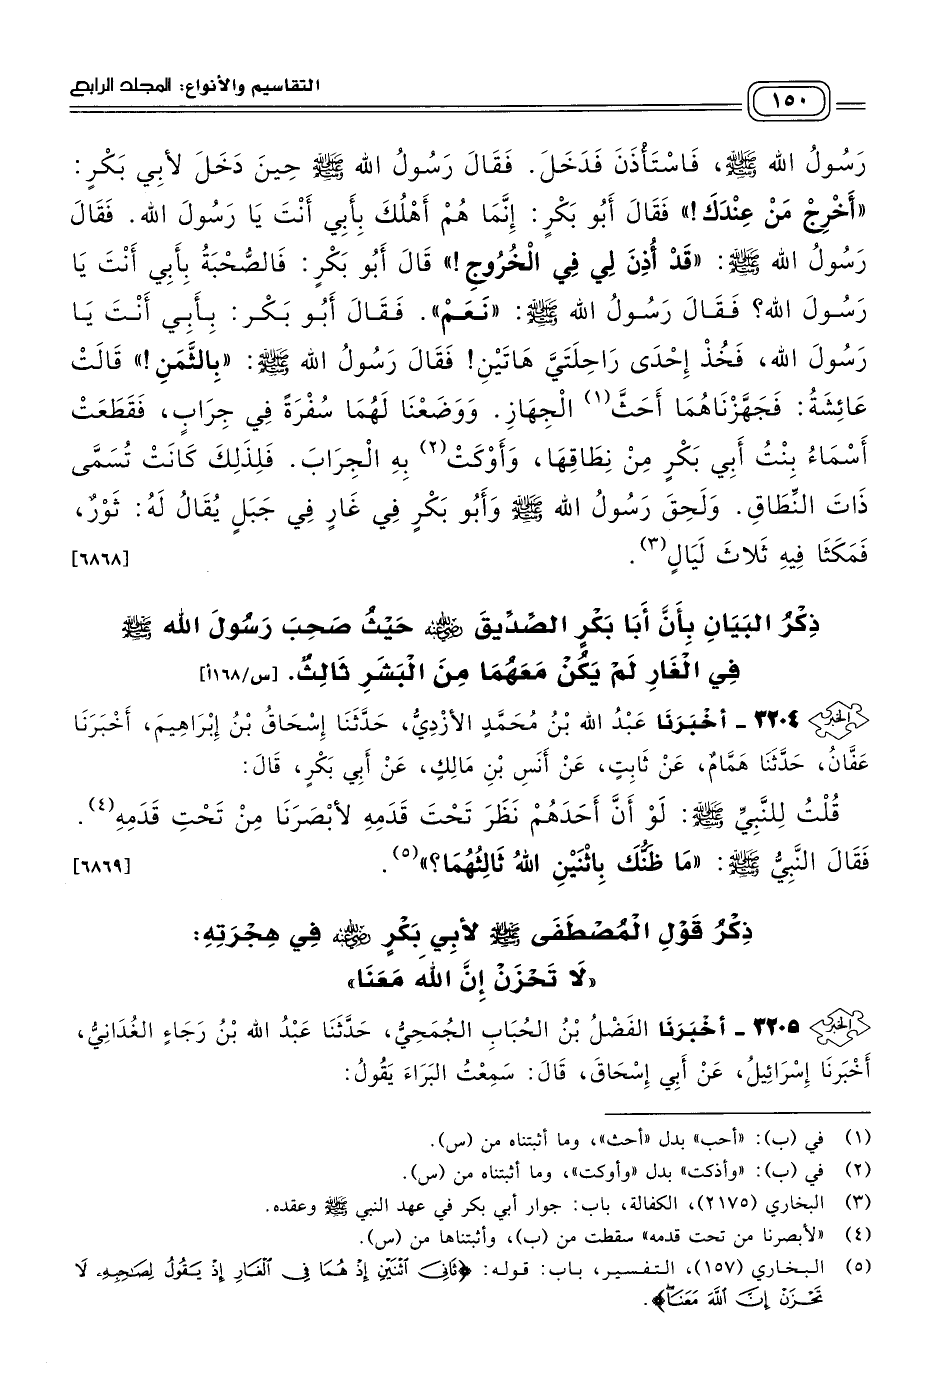 التقاسيم والأنواع: المجلد الرابع
١٥٠
رَسُولُ الله ﷺ، فَاسْتَأْذَنَ فَدَخَلَ. فَقَالَ رَسُولُ الله ﷺ حِينَ دَخَلَ لأبِي بَكْرٍ:
«أَخْرِجْ مَنْ عِنْدَكَ!» فَقَالَ أَبُو بَكْرٍ: إِنَّمَا هُمْ أَهْلُكَ بِأَبِي أَنْتَ يَا رَسُولَ الله. فَقَالَ
رَسُولُ الله ﷺ: «قَدْ أُذِنَ لِي فِي الْخُرُوجِ!» قَالَ أَبُو بَكْرٍ: فَالصُّحْبَةُ بِأَبِي أَنْتَ يَا
رَسُولَ الله؟ فَقَالَ رَسُولُ الله ﷺ: «نَعَمْ». فَقَالَ أَبُو بَكْرٍ: بِأَبِي أَنْتَ يَا
رَسُولَ الله، فَخُذْ إِحْدَى رَاحِلَتَيَّ هَاتَيْنِ! فَقَالَ رَسُولُ الله ﷺ: «بِالثَّمَنِ!» قَالَتْ
عَائِشَةُ: فَجَهَّزْنَاهُمَا أَحَثَّ(١) الْجِهَازِ. وَوَضَعْنَا لَهُمَا سُفْرَةً فِي جِرَابٍ، فَقَطَعَتْ
أَسْمَاءُ بِنْتُ أَبِي بَكْرٍ مِنْ نِطَاقِهَا، وَأَوْكَتْ(٢) بِهِ الْجِرَابَ. فَلِذَلِكَ كَانَتْ تُسَمَّى
ذَاتَ النِّطَاقِ. وَلَحِقَ رَسُولُ الله ﷺ وَأَبُو بَكْرٍ فِي غَارٍ فِي جَبَلٍ يُقَالُ لَهُ: ثَوْرٌ،
فَمَكَثَا فِيهِ ثَلَاثَ لَيَالٍ(٣). [٦٨٦٨]
ذِكْرُ البَيَانِ بِأَنَّ أَبَا بَكْرٍ الصِّدِّيقَ رضي الله عنه حَيْثُ صَحِبَ رَسُولَ الله ﷺ
فِي الْغَارِ لَمْ يَكُنْ مَعَهُمَا مِنَ الْبَشَرِ ثَالِثٌ. [س/١٦٨أ]
٣٢٠٤ - أَخْبَرَنَا عَبْدُ الله بْنُ مُحَمَّدٍ الأَزْدِيُّ، حَدَّثَنَا إِسْحَاقُ بْنُ إِبْرَاهِيمَ، أَخْبَرَنَا
عَفَّانُ، حَدَّثَنَا هَمَّامٌ، عَنْ ثَابِتٍ، عَنْ أَنَسِ بْنِ مَالِكٍ، عَنْ أَبِي بَكْرٍ، قَالَ:
قُلْتُ لِلنَّبِيِّ ﷺ: لَوْ أَنَّ أَحَدَهُمْ نَظَرَ تَحْتَ قَدَمِهِ لأَبْصَرَنَا مِنْ تَحْتِ قَدَمِهِ(٤).
فَقَالَ النَّبِيُّ ﷺ: «مَا ظَنُّكَ بِاثْنَيْنِ اللهُ ثَالِثُهُمَا؟»(٥). [٦٨٦٩]
ذِكْرُ قَوْلِ الْمُصْطَفَى ﷺ لأبِي بَكْرٍ رضي الله عنه فِي هِجْرَتِهِ:
«لَا تَحْزَنْ إِنَّ الله مَعَنَا»
٣٢٠٥ - أَخْبَرَنَا الفَضْلُ بْنُ الحُبَابِ الجُمَحِيُّ، حَدَّثَنَا عَبْدُ الله بْنُ رَجَاءٍ الغُدَانِيُّ،
أَخْبَرَنَا إِسْرَائِيلُ، عَنْ أَبِي إِسْحَاقَ، قَالَ: سَمِعْتُ البَرَاءَ يَقُولُ:
(١) في (ب): «أحب» بدل «أحث»، وما أثبتناه من (س).
(٢) في (ب): «وأذكت» بدل «وأوكت»، وما أثبتناه من (س).
(٣) البخاري (٢١٧٥)، الكفالة، باب: جوار أبي بكر في عهد النبي ﷺ وعقده.
(٤) «لأبصرنا من تحت قدمه» سقطت من (ب)، وأثبتناها من (س).
(٥) البخاري (١٥٧)، التفسير، باب: قوله: ﴿ثَانِيَ ٱثْنَيْنِ إِذْ هُمَا فِى ٱلْغَارِ إِذْ يَقُولُ لِصَٰحِبِهِۦ لَا
تَحْزَنْ إِنَّ ٱللَّهَ مَعَنَا﴾.